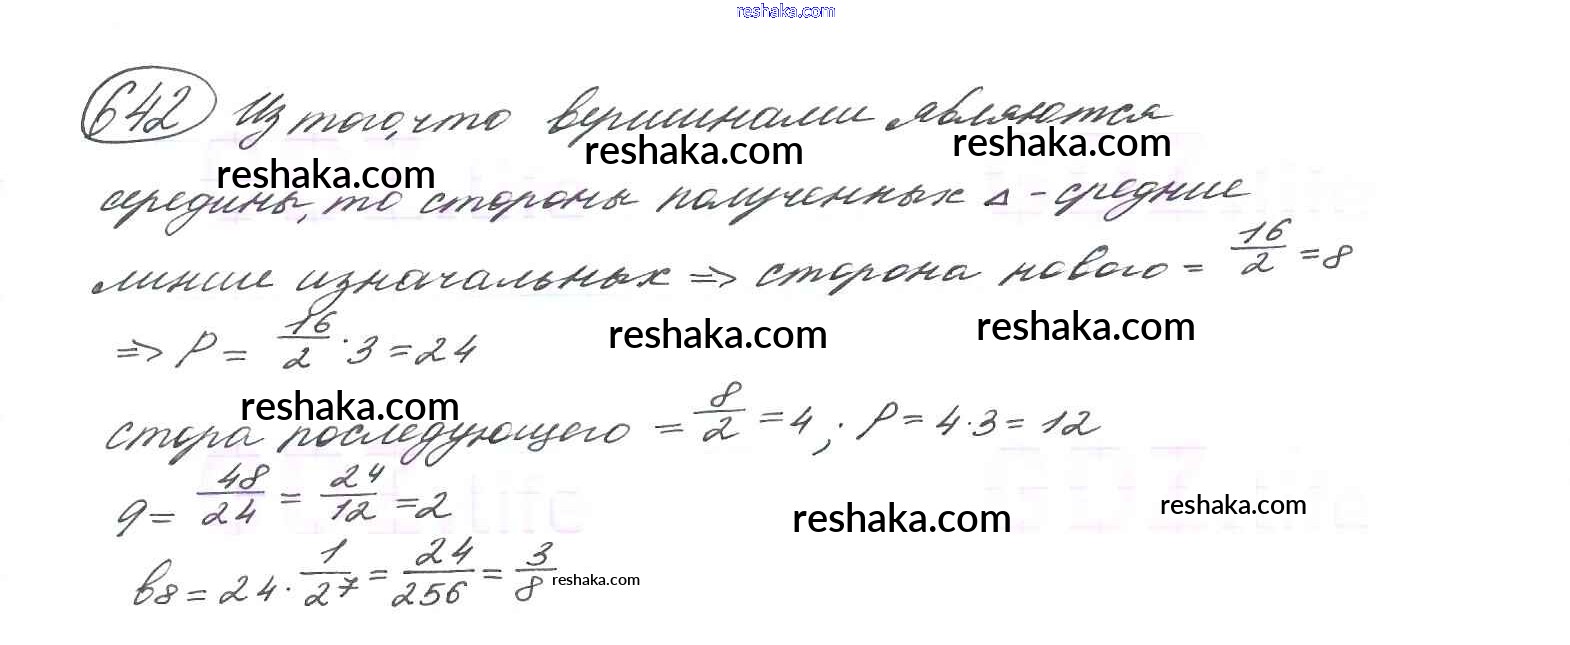 reshaka.com
642 Из того, что вершинами являются
reshaka.com reshaka.com reshaka.com
середины, то стороны полученных Δ - средние
линие изначальных => сторона нового = 16/2 = 8
=> P = 16/2 · 3 = 24
reshaka.com reshaka.com
reshaka.com
стора последующего = 8/2 = 4; P = 4·3 = 12
q = 48/24 = 24/12 = 2
reshaka.com reshaka.com
b8 = 24 · 1/27 = 24/256 = 3/8
reshaka.com